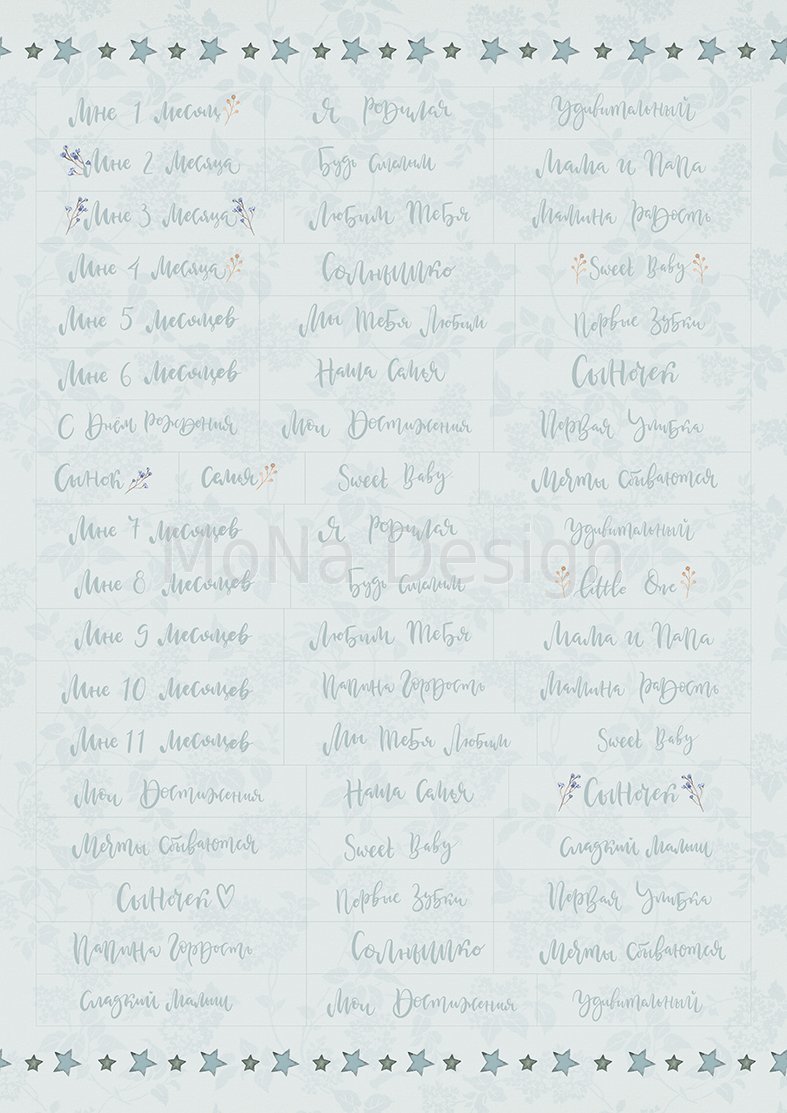 Мне 1 месяц Я Родился Удивительный
Мне 2 месяца Будь смелым Мама и Папа
Мне 3 месяца Любим Тебя Мамина Радость
Мне 4 месяца Солнышко Sweet Baby
Мне 5 месяцев Мы Тебя Любим Первые Зубки
Мне 6 месяцев Наша Семья Сыночек
С Днем Рождения Мои Достижения Первая Улыбка
Сынок Семья Sweet Baby Мечты Сбываются
Мне 7 месяцев Я Родился Удивительный
MoNa Design
Мне 8 месяцев Будь смелым little One
Мне 9 месяцев Любим Тебя Мама и Папа
Мне 10 месяцев Папина Гордость Мамина Радость
Мне 11 месяцев Мы Тебя Любим Sweet Baby
Мои Достижения Наша Семья Сыночек
Мечты Сбываются Sweet Baby Сладкий Малыш
Сыночек Первые Зубки Первая Улыбка
Папина Гордость Солнышко Мечты Сбываются
Сладкий Малыш Мои Достижения Удивительный